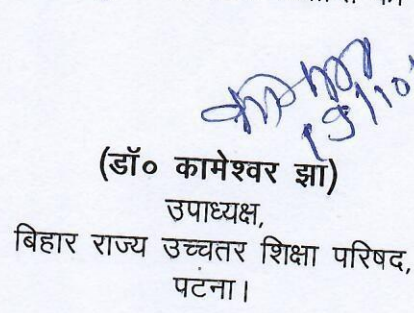 19/10
(डॉ० कामेश्वर झा)
उपाध्यक्ष,
बिहार राज्य उच्चतर शिक्षा परिषद,
पटना।